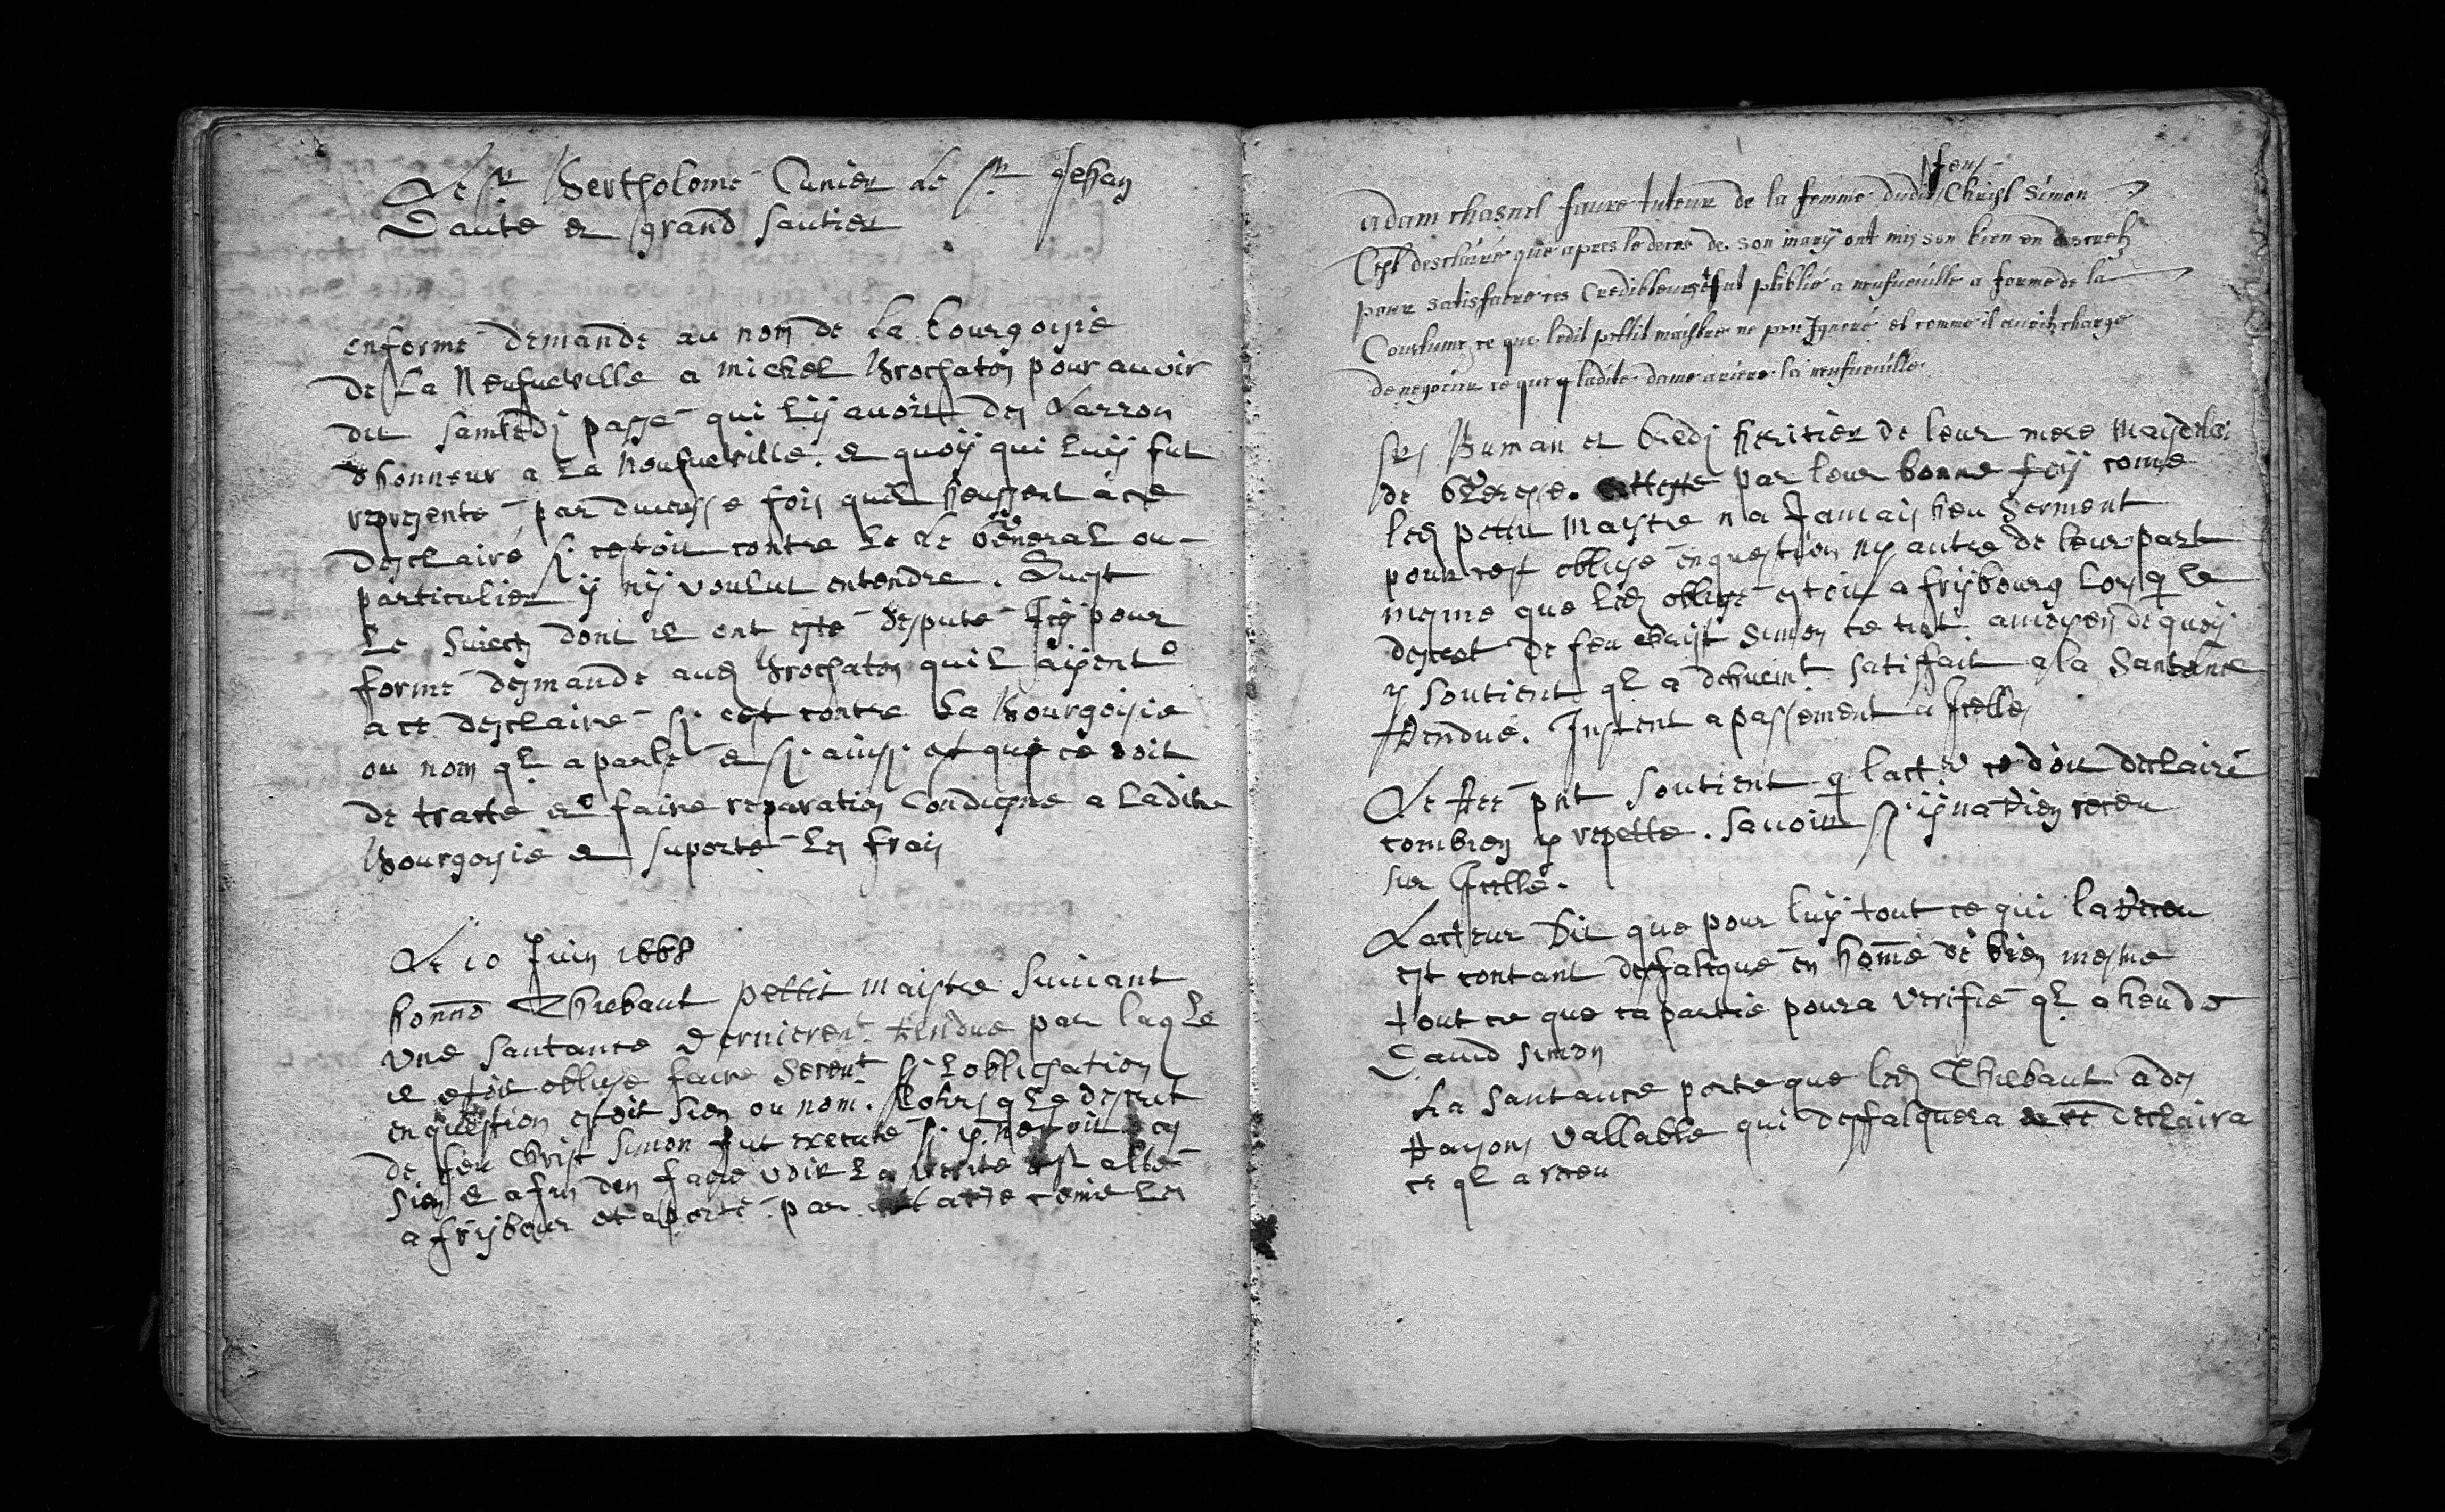 Le Sr Bertholome Cunier Le Sr Jehan
Daute et grand sautier
enforme demande au nom de la bourgoisie
de La Neufueville a michel Brochaton pour auoir
dit samedj passe qui lÿ auoit des Larron
dhonneur a La Neufueville. et quoÿ qui luÿ fut
represente par diuersse fois quil heussent a ce
desclairé sj cestoit contre Le Le General ou
particulier ÿ nÿ voulut entendre.
Le suiect dont il ont esté desputé Icÿ pour
forme desmande aud Brochaton quil aÿent
a ce desclairé sj cest contre La Bourgoisie
ou nom ql a parlé et sj ainsj est que ce doit
de tracte et faire reparation Condigne a Ladite
Bourgoisie et suporté les frais
Le 10 Juin 1668
honno Thiebaut pettit maistre suiuant
Vne santance dernierent rendue par laqle
il estoit oblige faire serent sj Loblication
en question estoit sien ou nom. Lohrs q Le descret
de feu Christ Simon fut executé sj
sien et afin den faire voir La verite est allé
a frÿbour et aporté par acte comme les
feu
adam chasnel faure tuteur de la femme dudit Christ Simon
Cest desclairé que apres le deces de son marÿ ont mis son bien en descret
pour satisfaire ces Crediteurs fut publié a neufueuille a forme de la
Coustume, ce que ledit pettit maistre ne peu Ignoré et comme il auoit charge
de negotier ce que ladite dame ariere la neufueuille.
Srs Buman et bredj heritier de leur mere
de atteste par leur bonne foÿ come
led pettit maistre na Jamais heu serment
pour cest oblige en question nÿ autre de leur part
mesme que led oblige estoit a frÿbourg Lors q Le
descret de feu Christ Simon ce tint. amoÿen de quoÿ
y soutient ql a dehuemt satisfait a la Santence
Rendue. Instent a passement a Icelles
Le Ree pnt soutient q lacteur ce doit declairé
combien y repette. Sauoir sj ÿ na Rien receu
sur Icelle.
Lacteur dit que pour luÿ tout ce qui la Receu
est contant desfalqué en home de bien mesme
tout ce que ca partie poura verifié ql a heu de
Dauid Simon
La Santance porte que led Thiebaut a des
Raÿsons vallable qui desfalquera et ce declaira
ce ql a receu